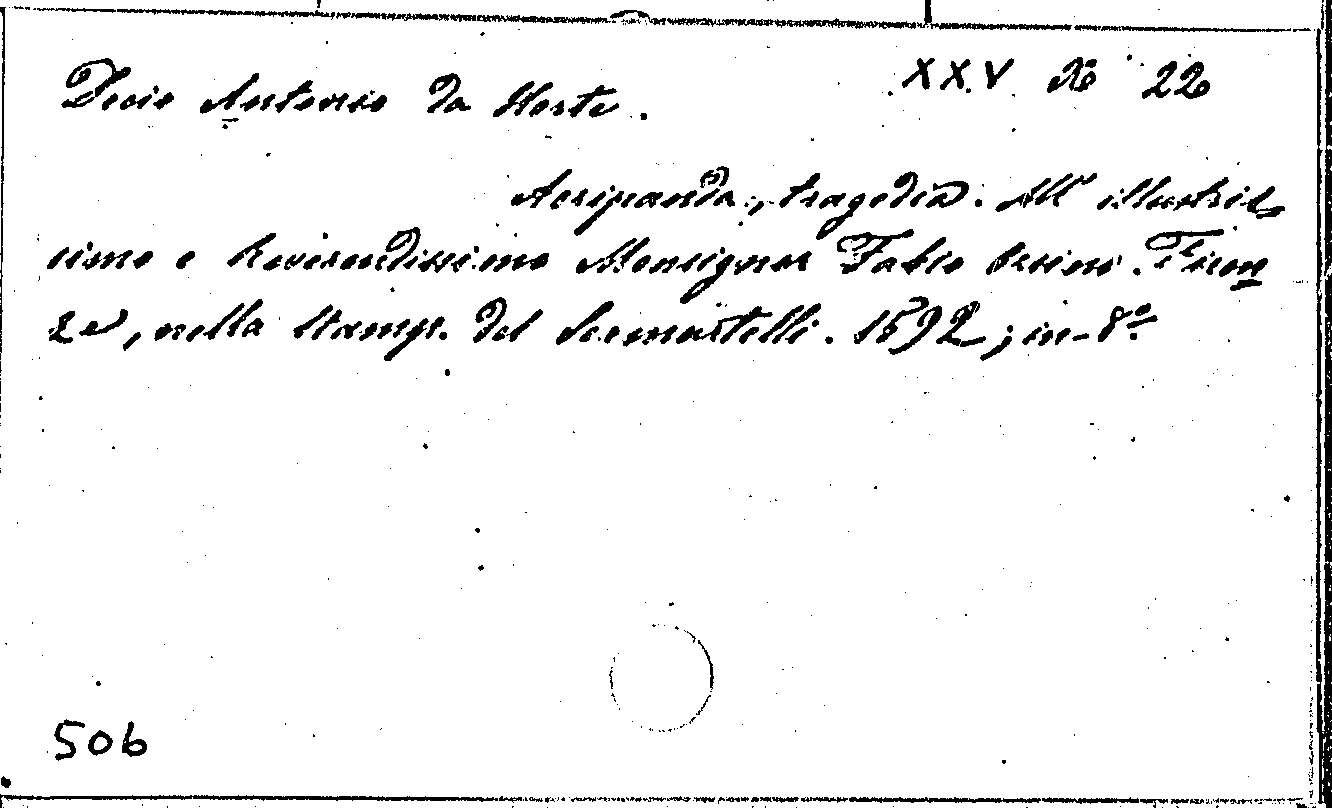 Decio Antonio da Horte. XXV Xe 22
Acripanda, tragedia. All' illustris-
simo e Reverendissimo Monsignor Fabio Orsino. Firen
ze, nella Stamp. del Sermartelli. 1592; in-8º
506